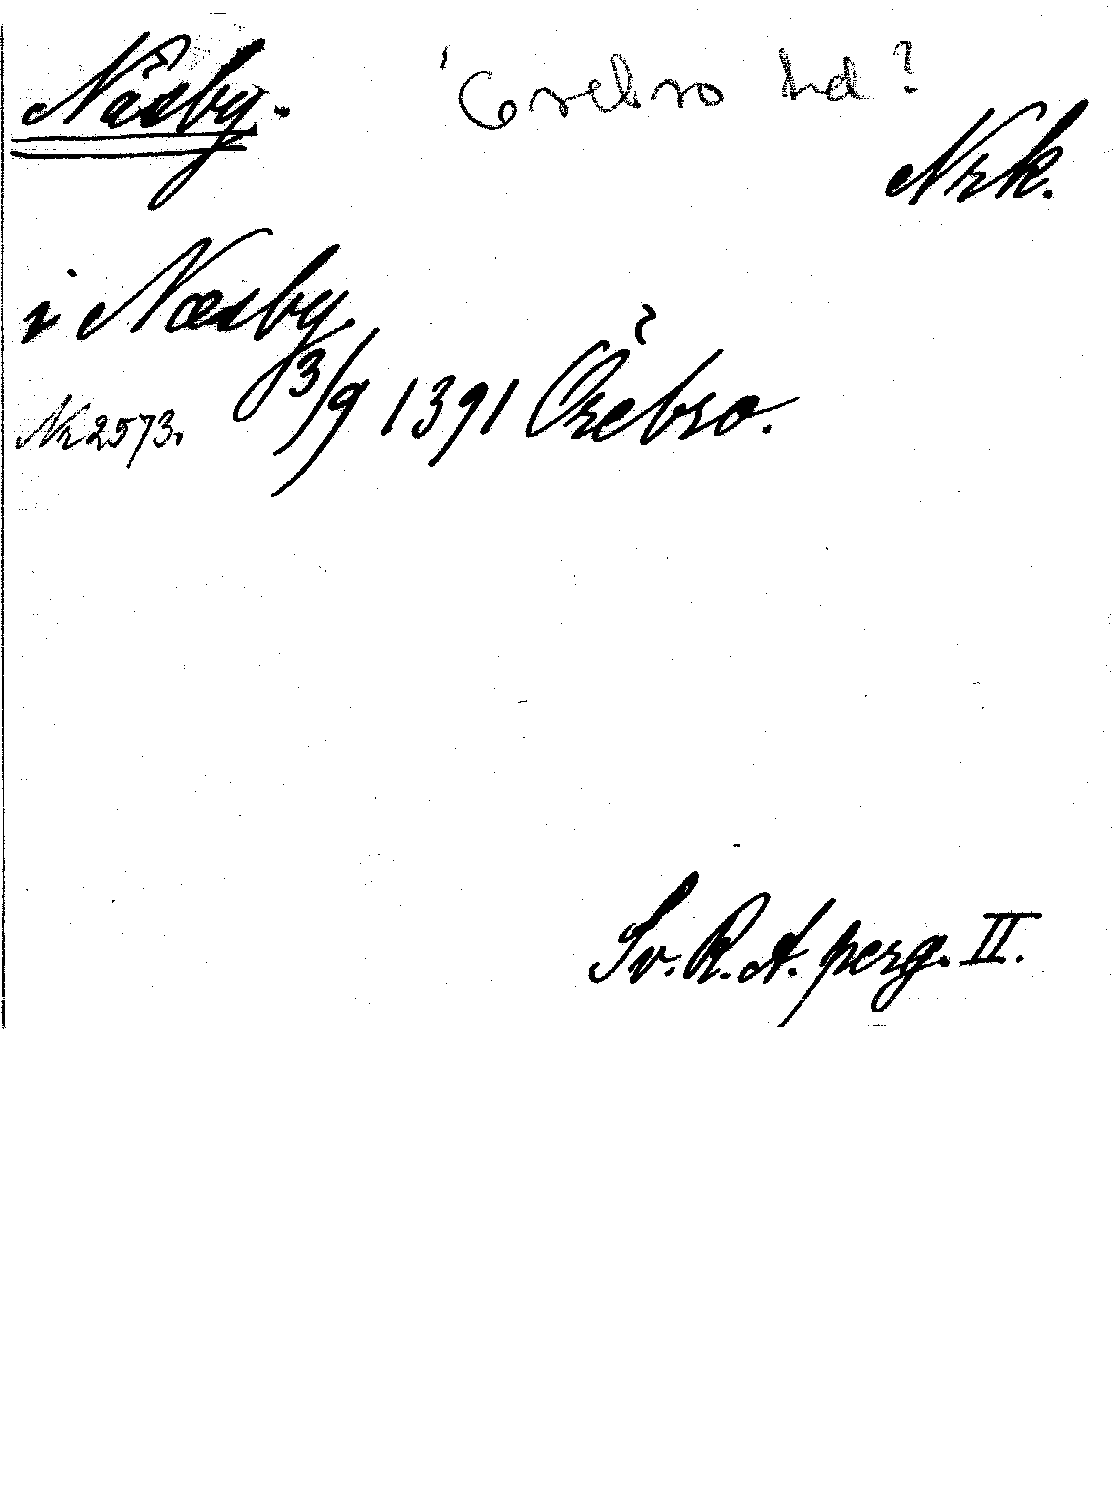 Näsby. Örebro hd?
Nrk.
i Næsby
3/9 1391 Örebro.
Nr 2573.
Sv. R. A. perg. II.